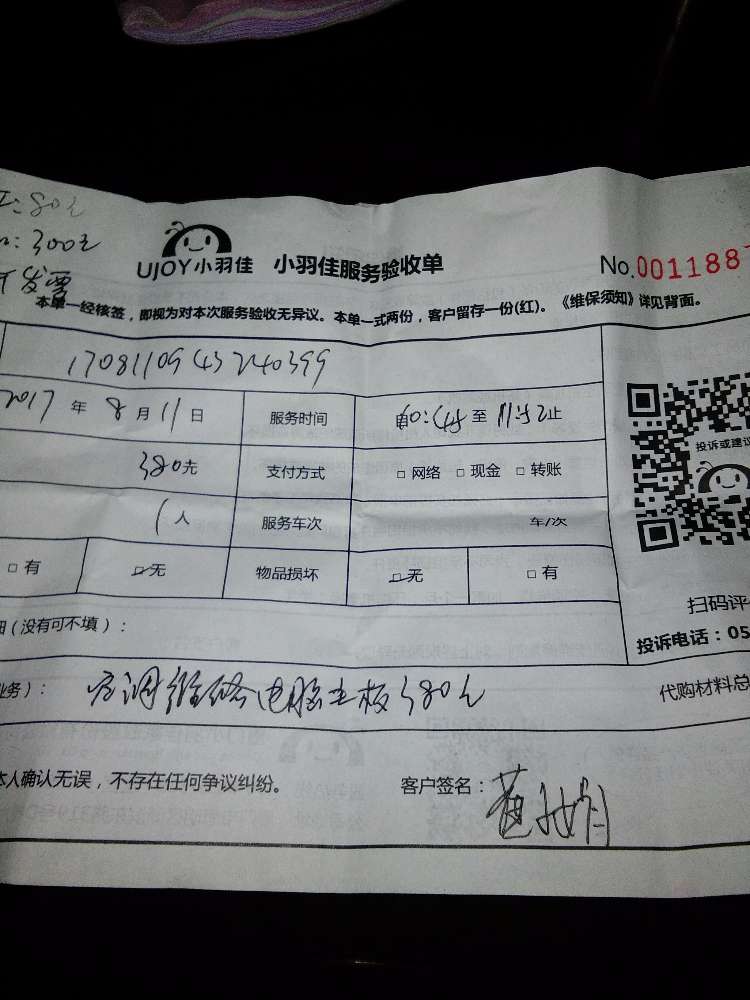 工:80元
300元
发票
UJOY小羽佳 小羽佳服务验收单 No.0011887
本单一经核签，即视为对本次服务验收无异议。本单一式两份，客户留存一份(红)。《维保须知》详见背面。
1708110943240399
2017年8月11日 服务时间 至 止
380元 支付方式 □网络 □现金 □转账
1人 服务车次 车/次
□有 □无 物品损坏 □无 □有
投诉或建议
扫码评
(没有可不填)：
投诉电话：05
业务)： 空调维修电脑主板380元 代购材料总
本人确认无误，不存在任何争议纠纷。 客户签名：